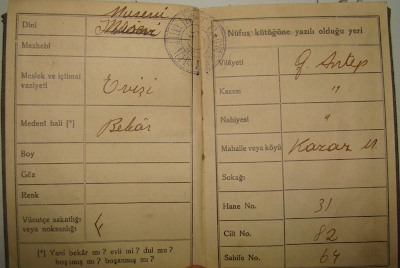 Musevi
Dini Musevi
Mezhebi
Meslek ve içtimaî
vaziyeti Evişi
Medenî hali [*] Bekâr
Boy
Göz
Renk
Vücutçe sakatlığı
veya noksanlığı
[*] Yani bekâr mı? evli mi? dul mu?
boşamış mı? boşanmış mı?
Nüfus kütüğüne yazılı olduğu yeri
Vilâyeti G. Antep
Kazası "
Nahiyesi "
Mahalle veya köyü Kozar M.
Sokağı
Hane No. 31
Cilt No. 82
Sahife No. 64